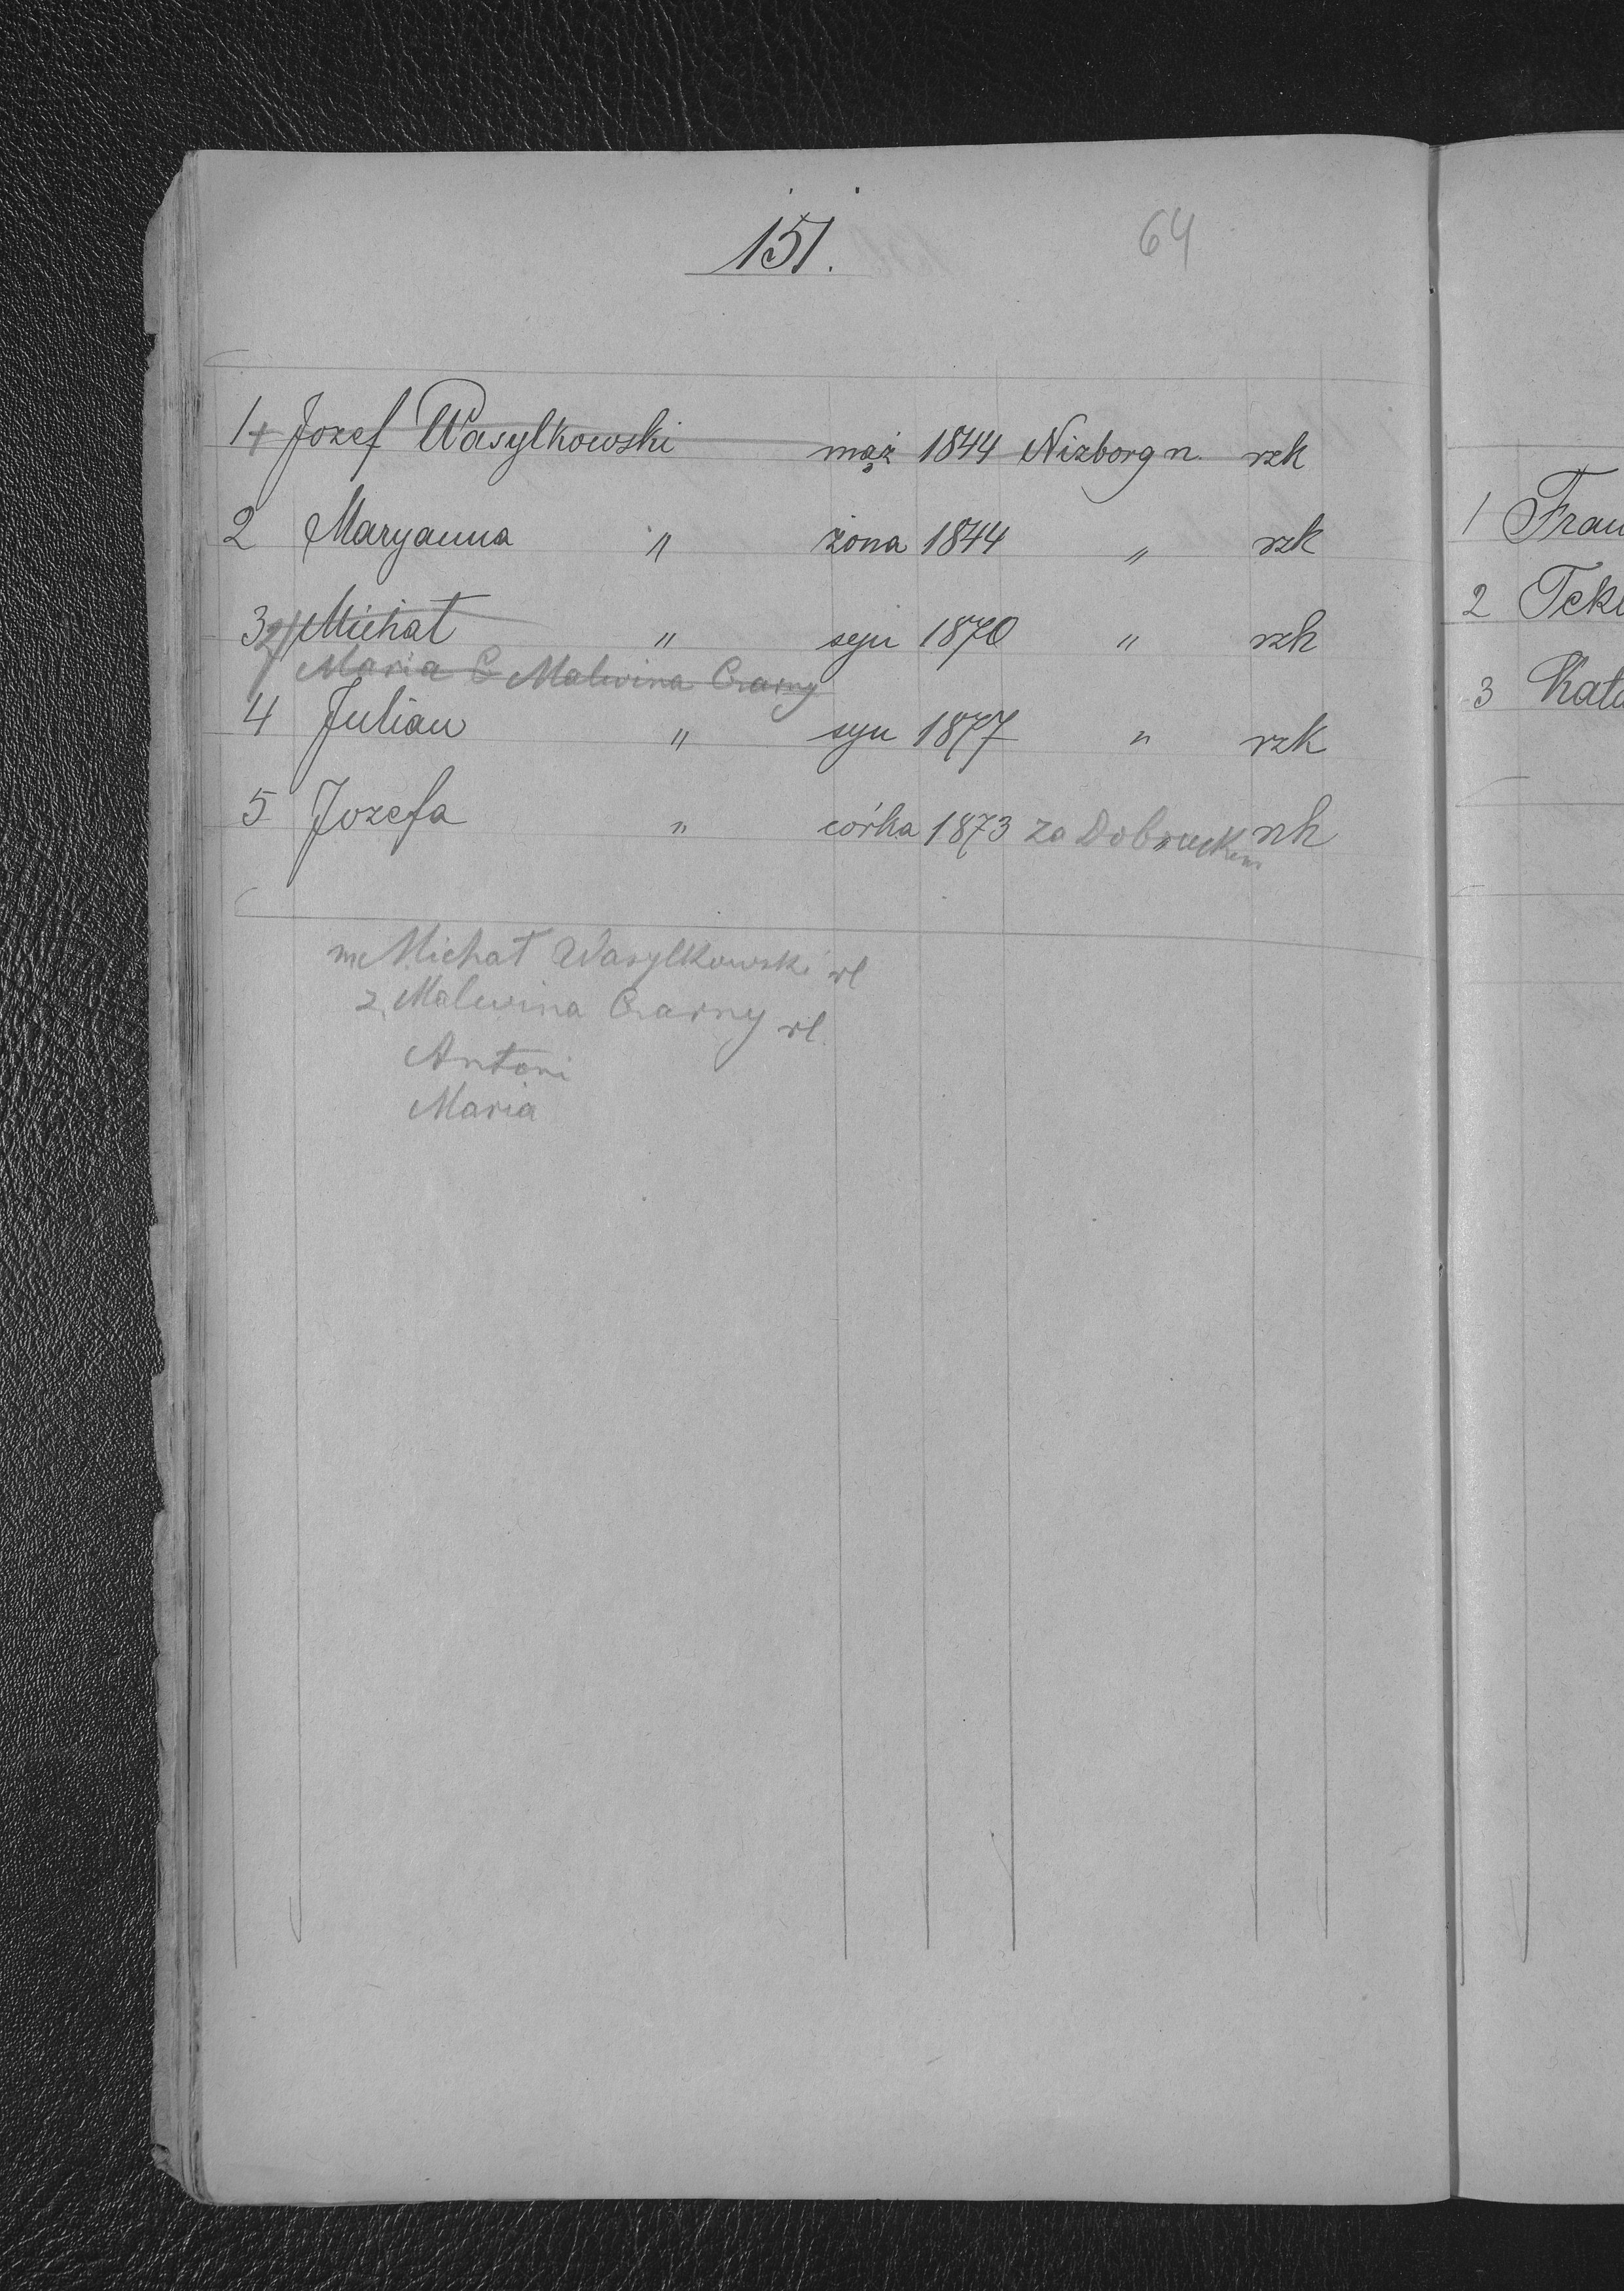 151.
64
1 + Jozef Wasylkowski mąż 1844 Nizborg n. rzk
2 Maryanna " żona 1844 " rzk
3 Michał " syn 1870 " rzk
Maria C Malwina Czarny
4 Julian " syn 1877 " rzk
5 Jozefa " córka 1873 za Dobruckim rzk
m Michał Wasylkowski rl
ż Malwina Czarny rl
Antoni
Maria
1 Fran
2 Tekl
3 Kata